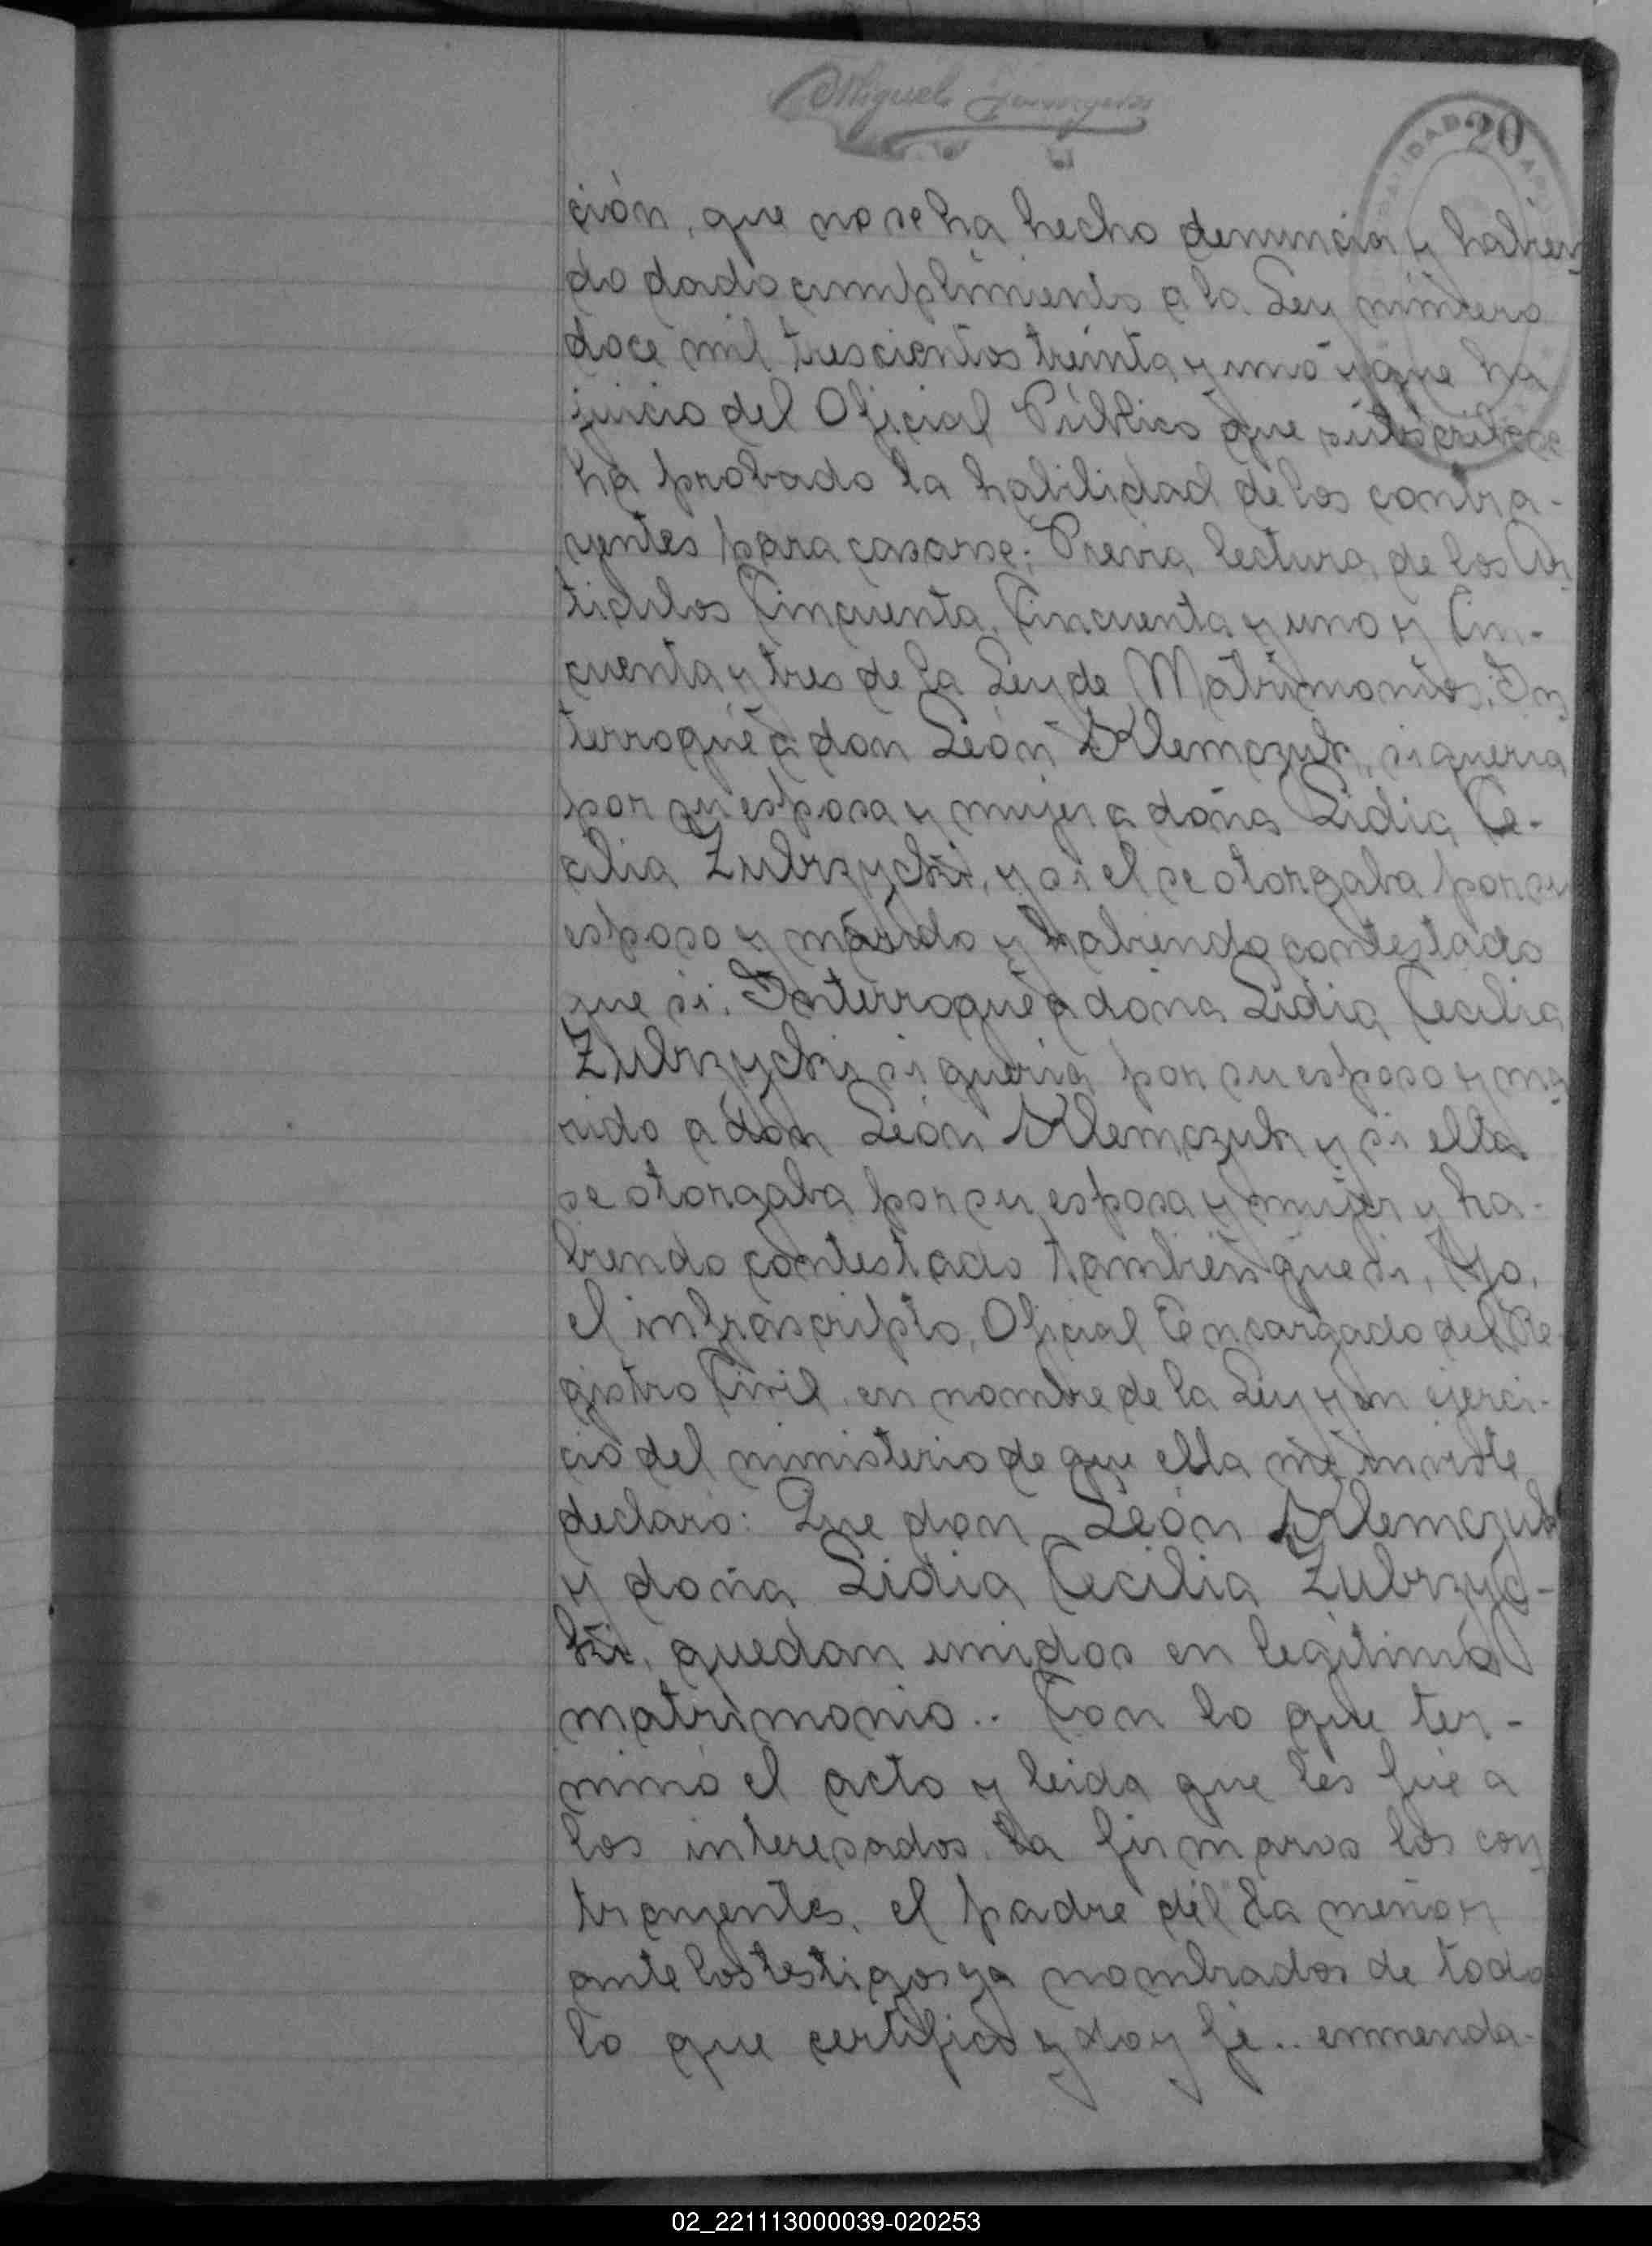 Miguel
20
ción, que no se ha hecho denuncia y habien
do dado cumplimiento a la Ley número
doce mil trescientos treinta y uno y que ha
juicio del Oficial Público que subscribe se
ha probado la habilidad de los contra-
yentes para casarse: Previa lectura de los Ar
ticulos Cincuenta, Cincuenta y uno y Cin-
cuenta y tres de la Ley de Matrimonios: In
terrogué a don León Klemczuk, si queria
por su esposa y mujer a doña Lidia Ce-
cilia Zubrzycki, y si el se otorgaba por su
esposo y marido y habiendo contestado
que si. Interrogué a doña Lidia Cecilia
Zubrzycki si queria por su esposo y ma
rido a don León Klemczuk y si ella
se otorgaba por su esposa y mujer y ha-
biendo contestado tambien que si, Yo,
el infrascripto, Oficial Encargado del Re-
gistro Civil, en nombre de la Ley y en ejerci-
cio del ministerio de que ella me inviste
declaro: Que don León Klemczuk
y doña Lidia Cecilia Zubrzyc-
ki, quedan unidos en legitimo
matrimonio.. Con lo que ter-
minó el acto y leida que les fué a
los interesados, la firmaron los con
trayentes, el padre del la menor
ante los testigos ya nombrados de todo
lo que certifico y doy fé.. enmenda-
02_221113000039-020253